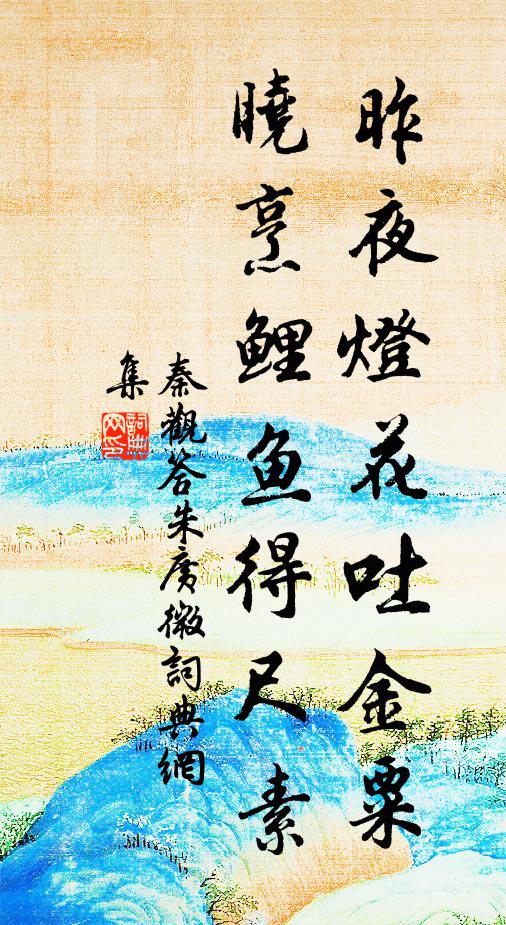 昨夜燈花吐金粟
曉烹鲤鱼得尺素
秦觀答朱广微詞典網
集
詞典网印